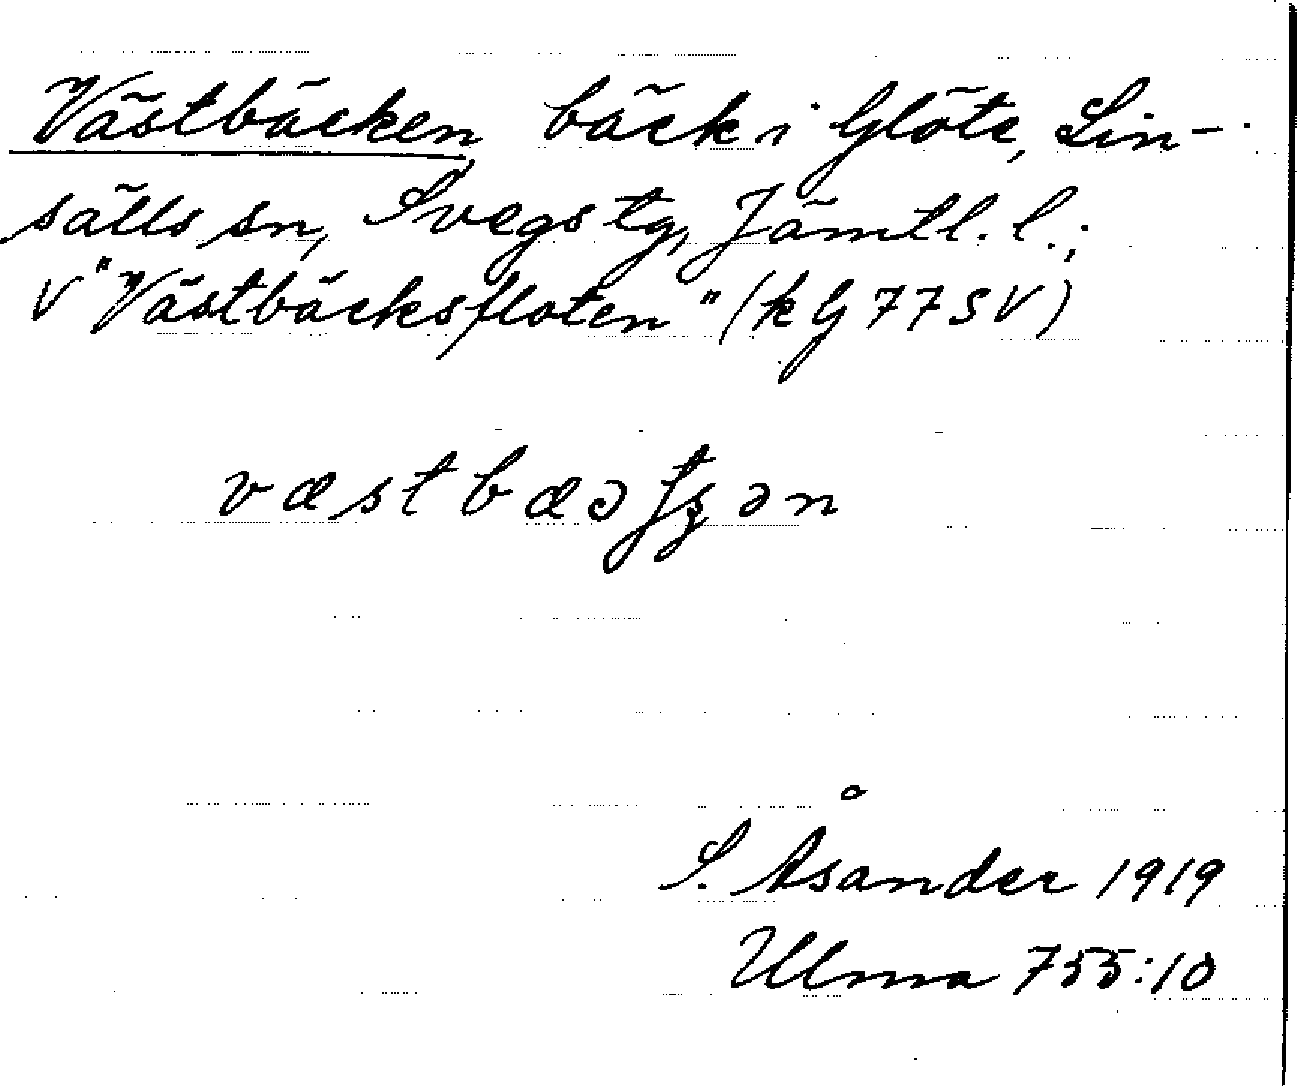 Västbäcken bäck i Glöte, Lin-
sälls sn, Svegs tg, Jämtl. l.;
V "Västbäcksfloten" (k G 77 SV)
væstbæə ən
S. Åsander 1919
Ulma 755:10